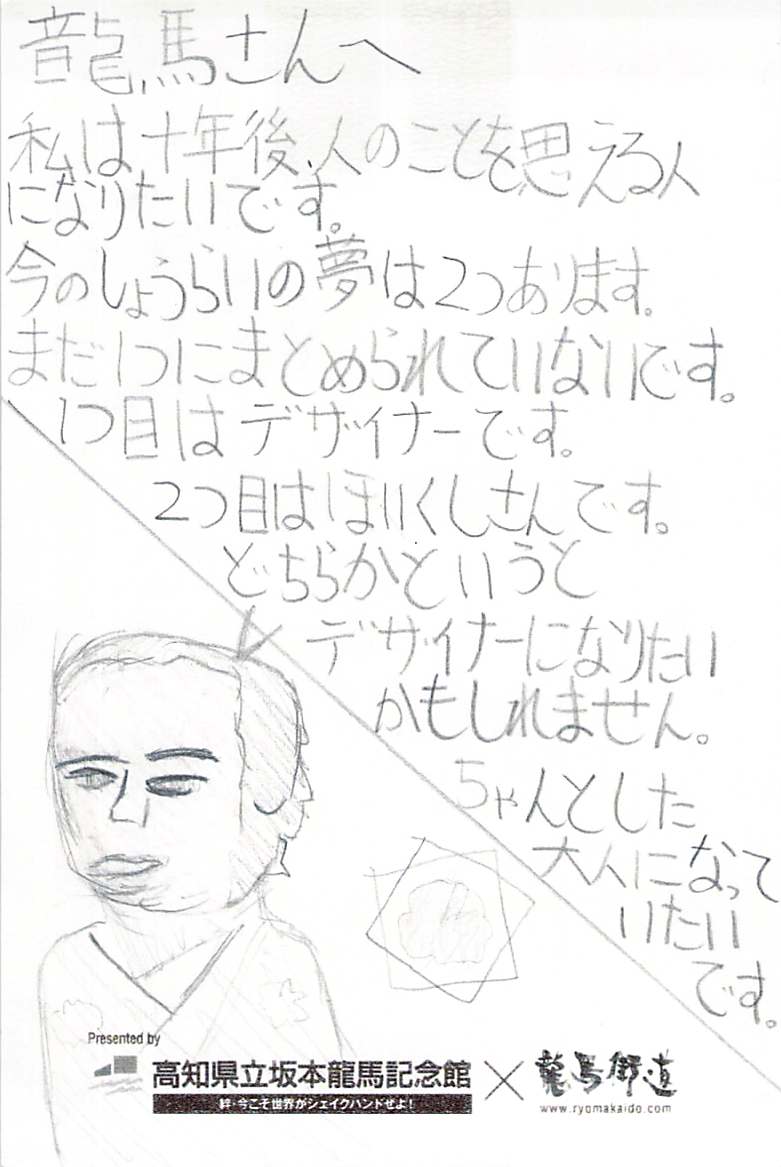 龍馬さんへ
私は十年後、人のことを思える人
になりたいです。
今のしょうらいの夢は2つあります。
まだ1つにまとめられていないです。
1つ目はデザイナーです。
2つ目はほいくしさんです。
どちらかというと
デザイナーになりたい
かもしれません。
ちゃんとした
大人になって
いたい
です。
Presented by
高知県立坂本龍馬記念館×龍馬街道
絆・今こそ世界がシェイクハンドせよ!
www.ryomakaido.com